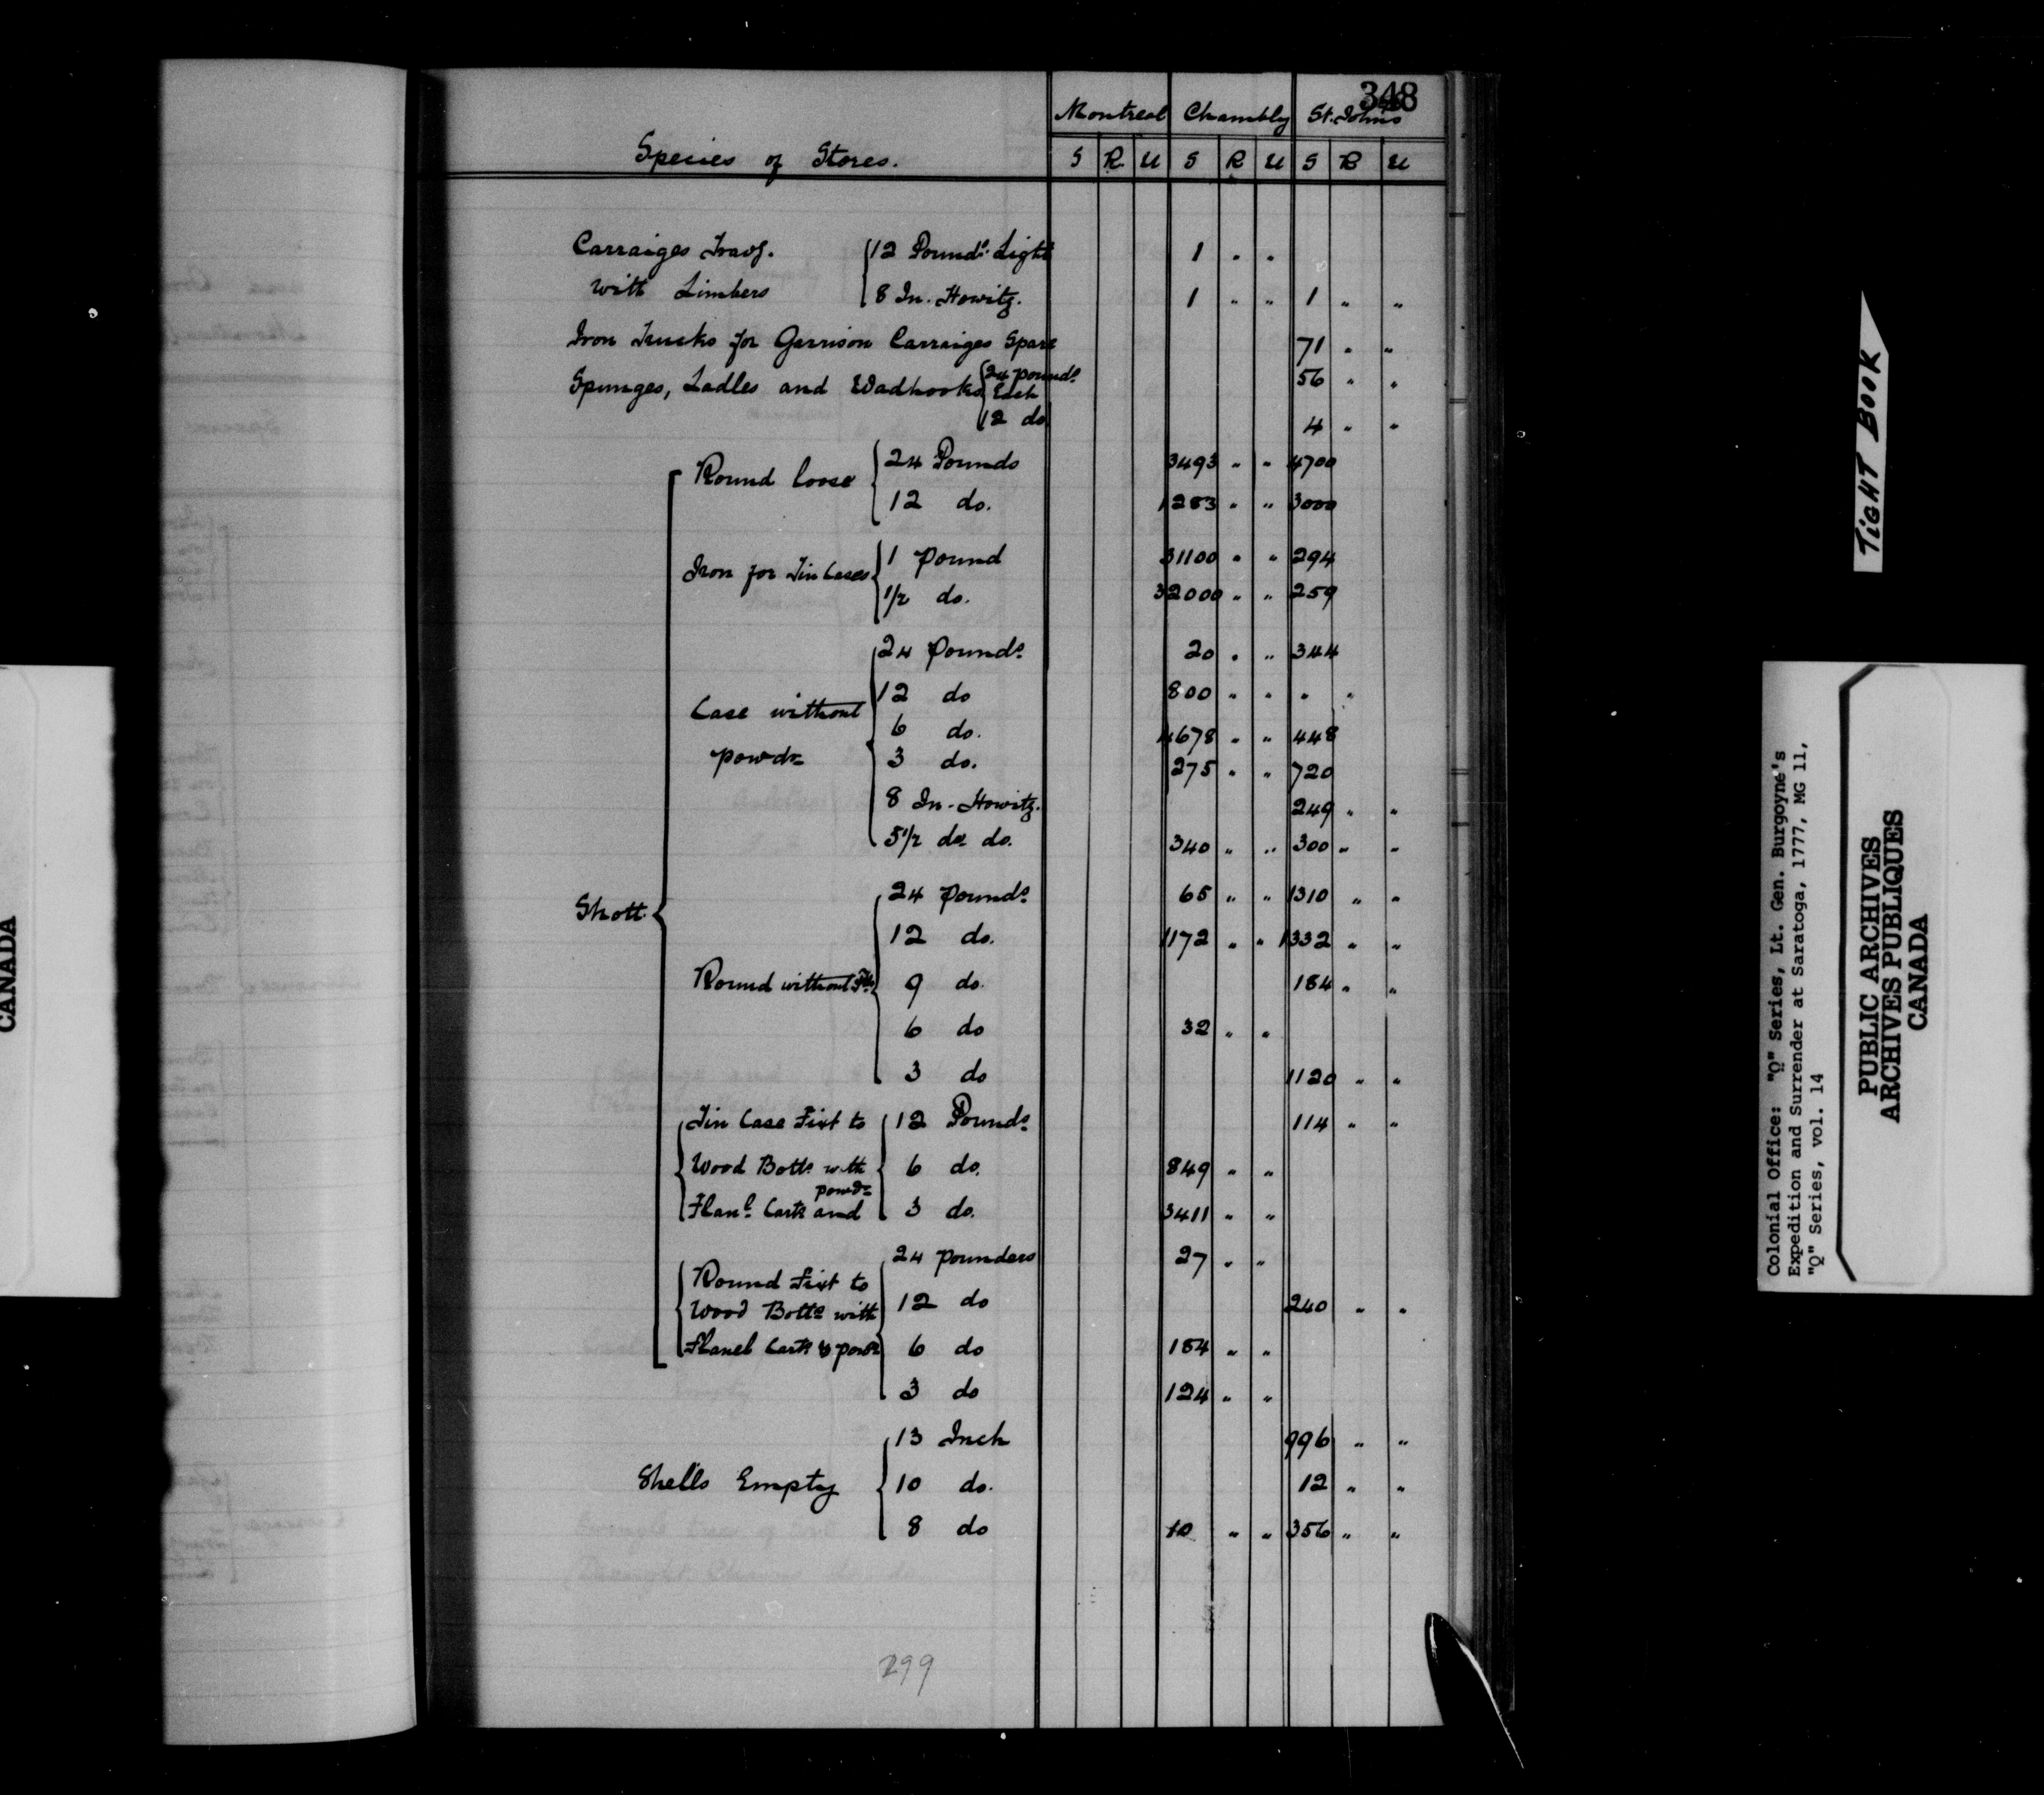 348
Montreal Chambly St. Johns
Species of Stores. S R U S R U S R U
Carraiges Travg. { 12 Pounds. Light 1 " "
with Limbers { 8 In. Howitz. 1 " " 1 " "
Iron Trucks for Garrison Carraiges Spare 71 " "
Spunges, Ladles and Wadhooks { 24 pounds Each 56 " "
12 do 4 " "
Round loose { 24 Pounds 3493 " " 4700
12 do. 1283 " " 3000
Iron for Tin Cases { 1 pound 31100 " " 294
1/2 do. 32000 " " 259
24 pounds 20 " " 344
12 do 800 " " " "
Case without { 6 do. 4678 " " 448
powdr 3 do. 275 " " 720
8 In. Howitz. 249 " "
5 1/2 do. do. 340 " " 300 " "
24 pounds 65 " " 1310 " "
Shott {
12 do. 1172 " " 1332 " "
Round without { 9 do. 184 " "
6 do 32 " "
3 do 1120 " "
Tin Case Fixt to { 12 Pounds 114 " "
Wood Botts with { 6 do. 849 " "
powdr
Flanl. Carts and 3 do. 3411 " "
24 pounders 27 " "
Round Fixt to
Wood Botts with { 12 do 240 " "
Flanel Carts & powdr 6 do 184 " "
3 do 124 " "
13 Inch 996 " "
Shells Empty { 10 do. 12 " "
8 do 10 " " 356 " "
299
TIGHT BOOK
Colonial Office: "Q" Series, Lt. Gen. Burgoyne's
Expedition and Surrender at Saratoga, 1777, MG 11,
"Q" Series, vol. 14
PUBLIC ARCHIVES
ARCHIVES PUBLIQUES
CANADA
CANADA